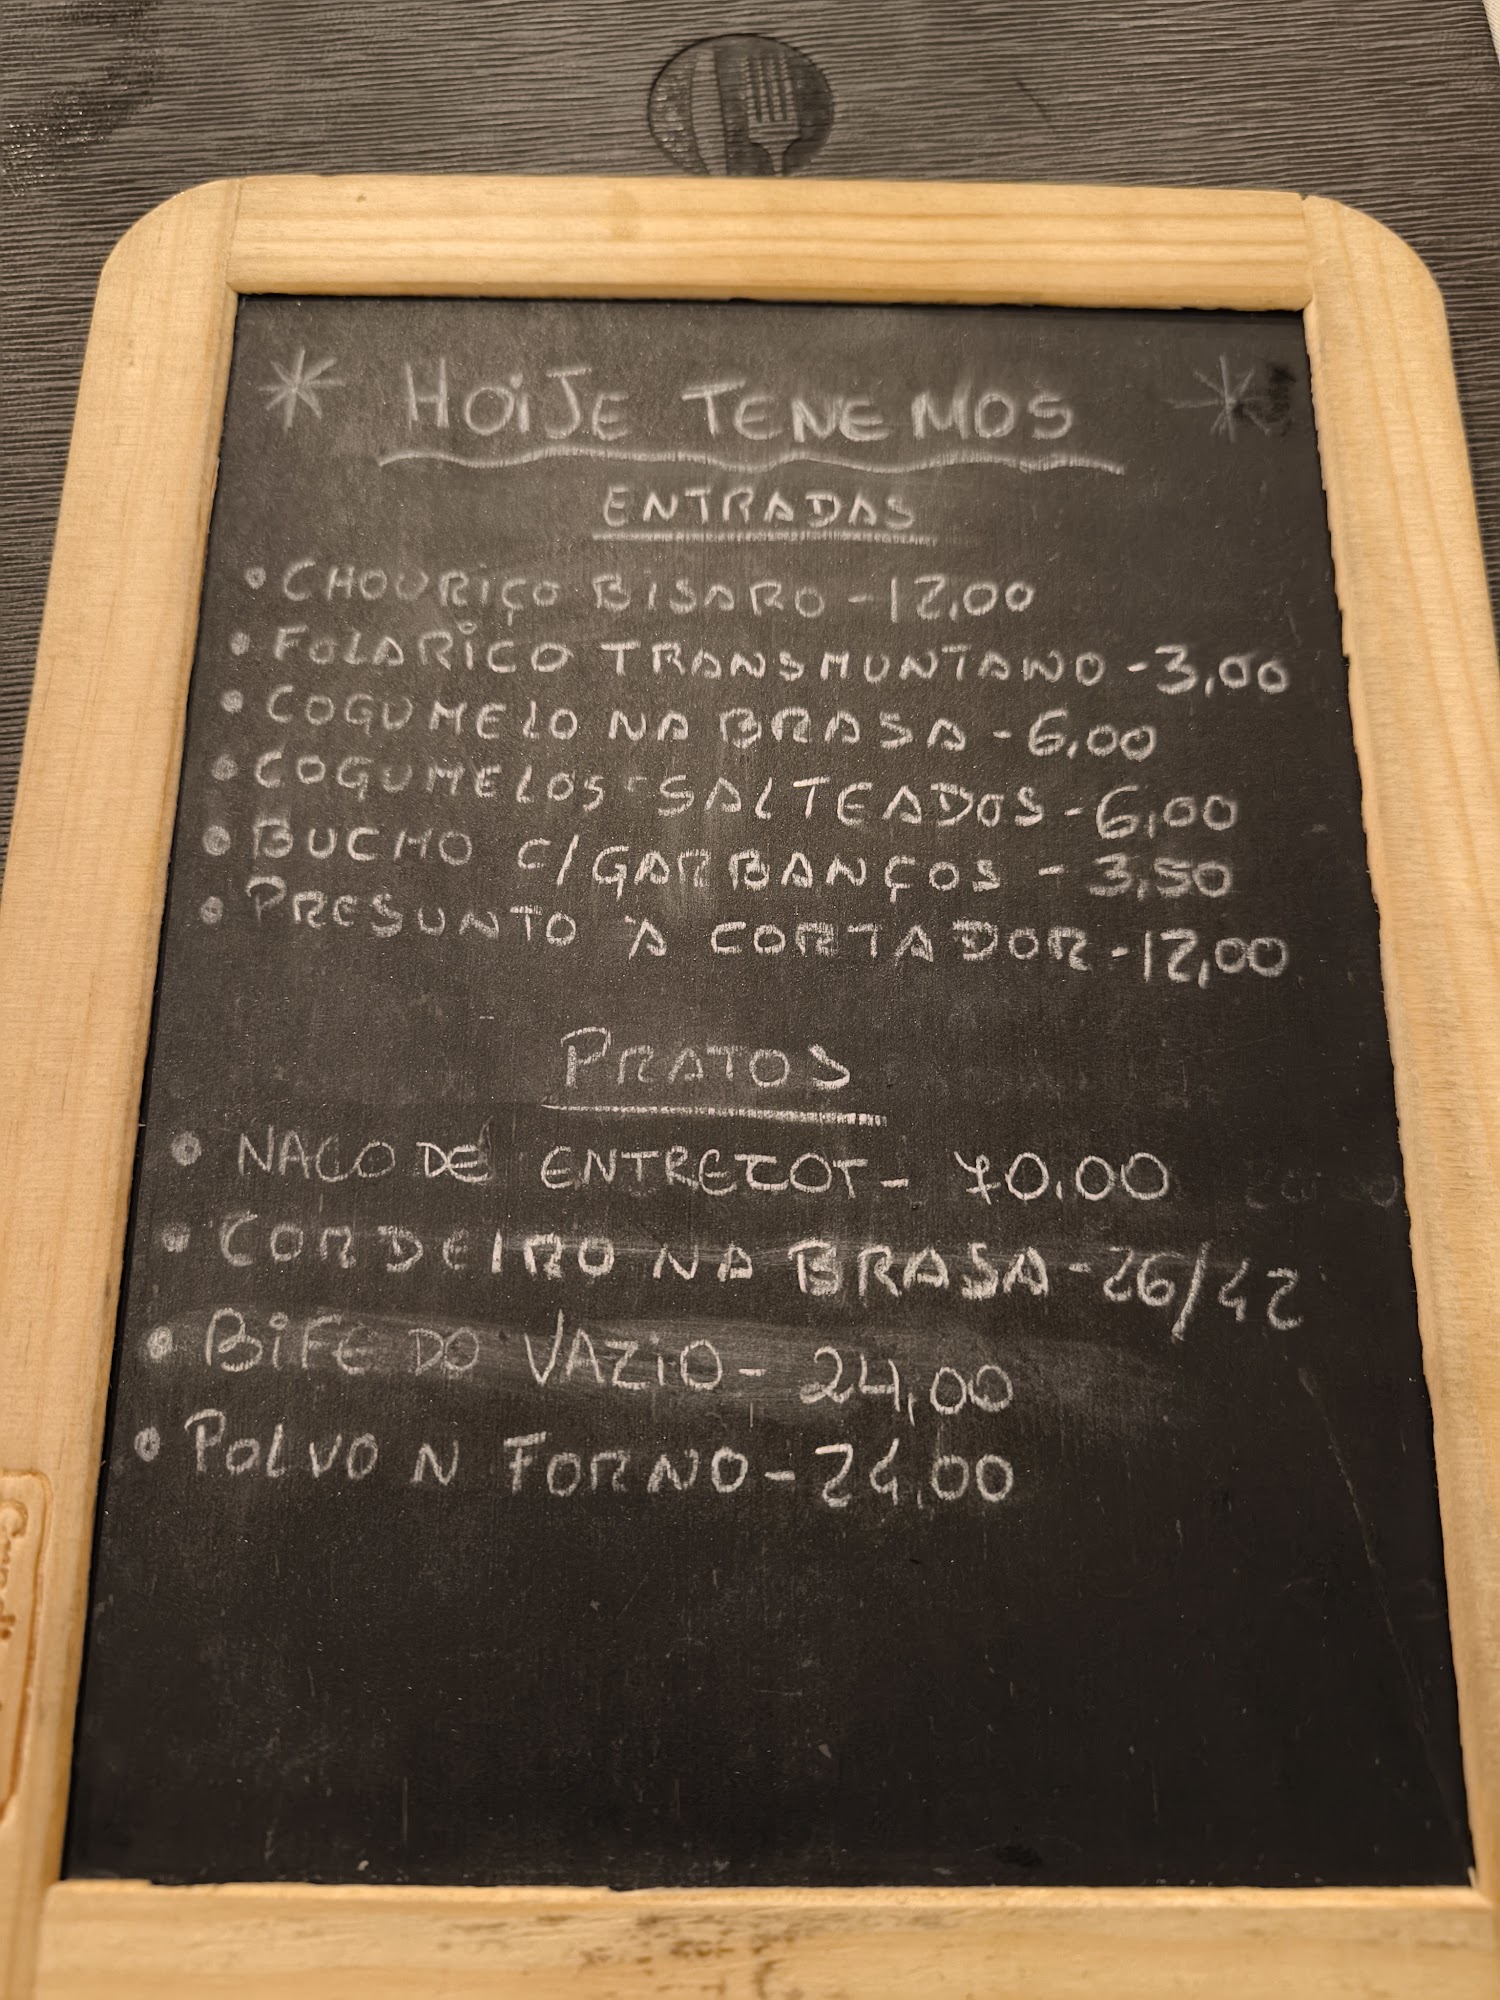 HOiJE TENEMOS
ENTRADAS
• CHOURIÇO BISARO - 12,00
• FOLARICO TRANSMUNTANO - 3,00
• COGUMELO NA BRASA - 6,00
• COGUMELOS SALTEADOS - 6,00
• BUCHO C/ GARBANÇOS - 3,50
• PRESUNTO À CORTADOR - 12,00
PRATOS
• NACO DE ENTRECOT - 70.00
• CORDEIRO NA BRASA - 26/42
• BIFE DO VAZIO - 24,00
• POLVO N FORNO - 24,00